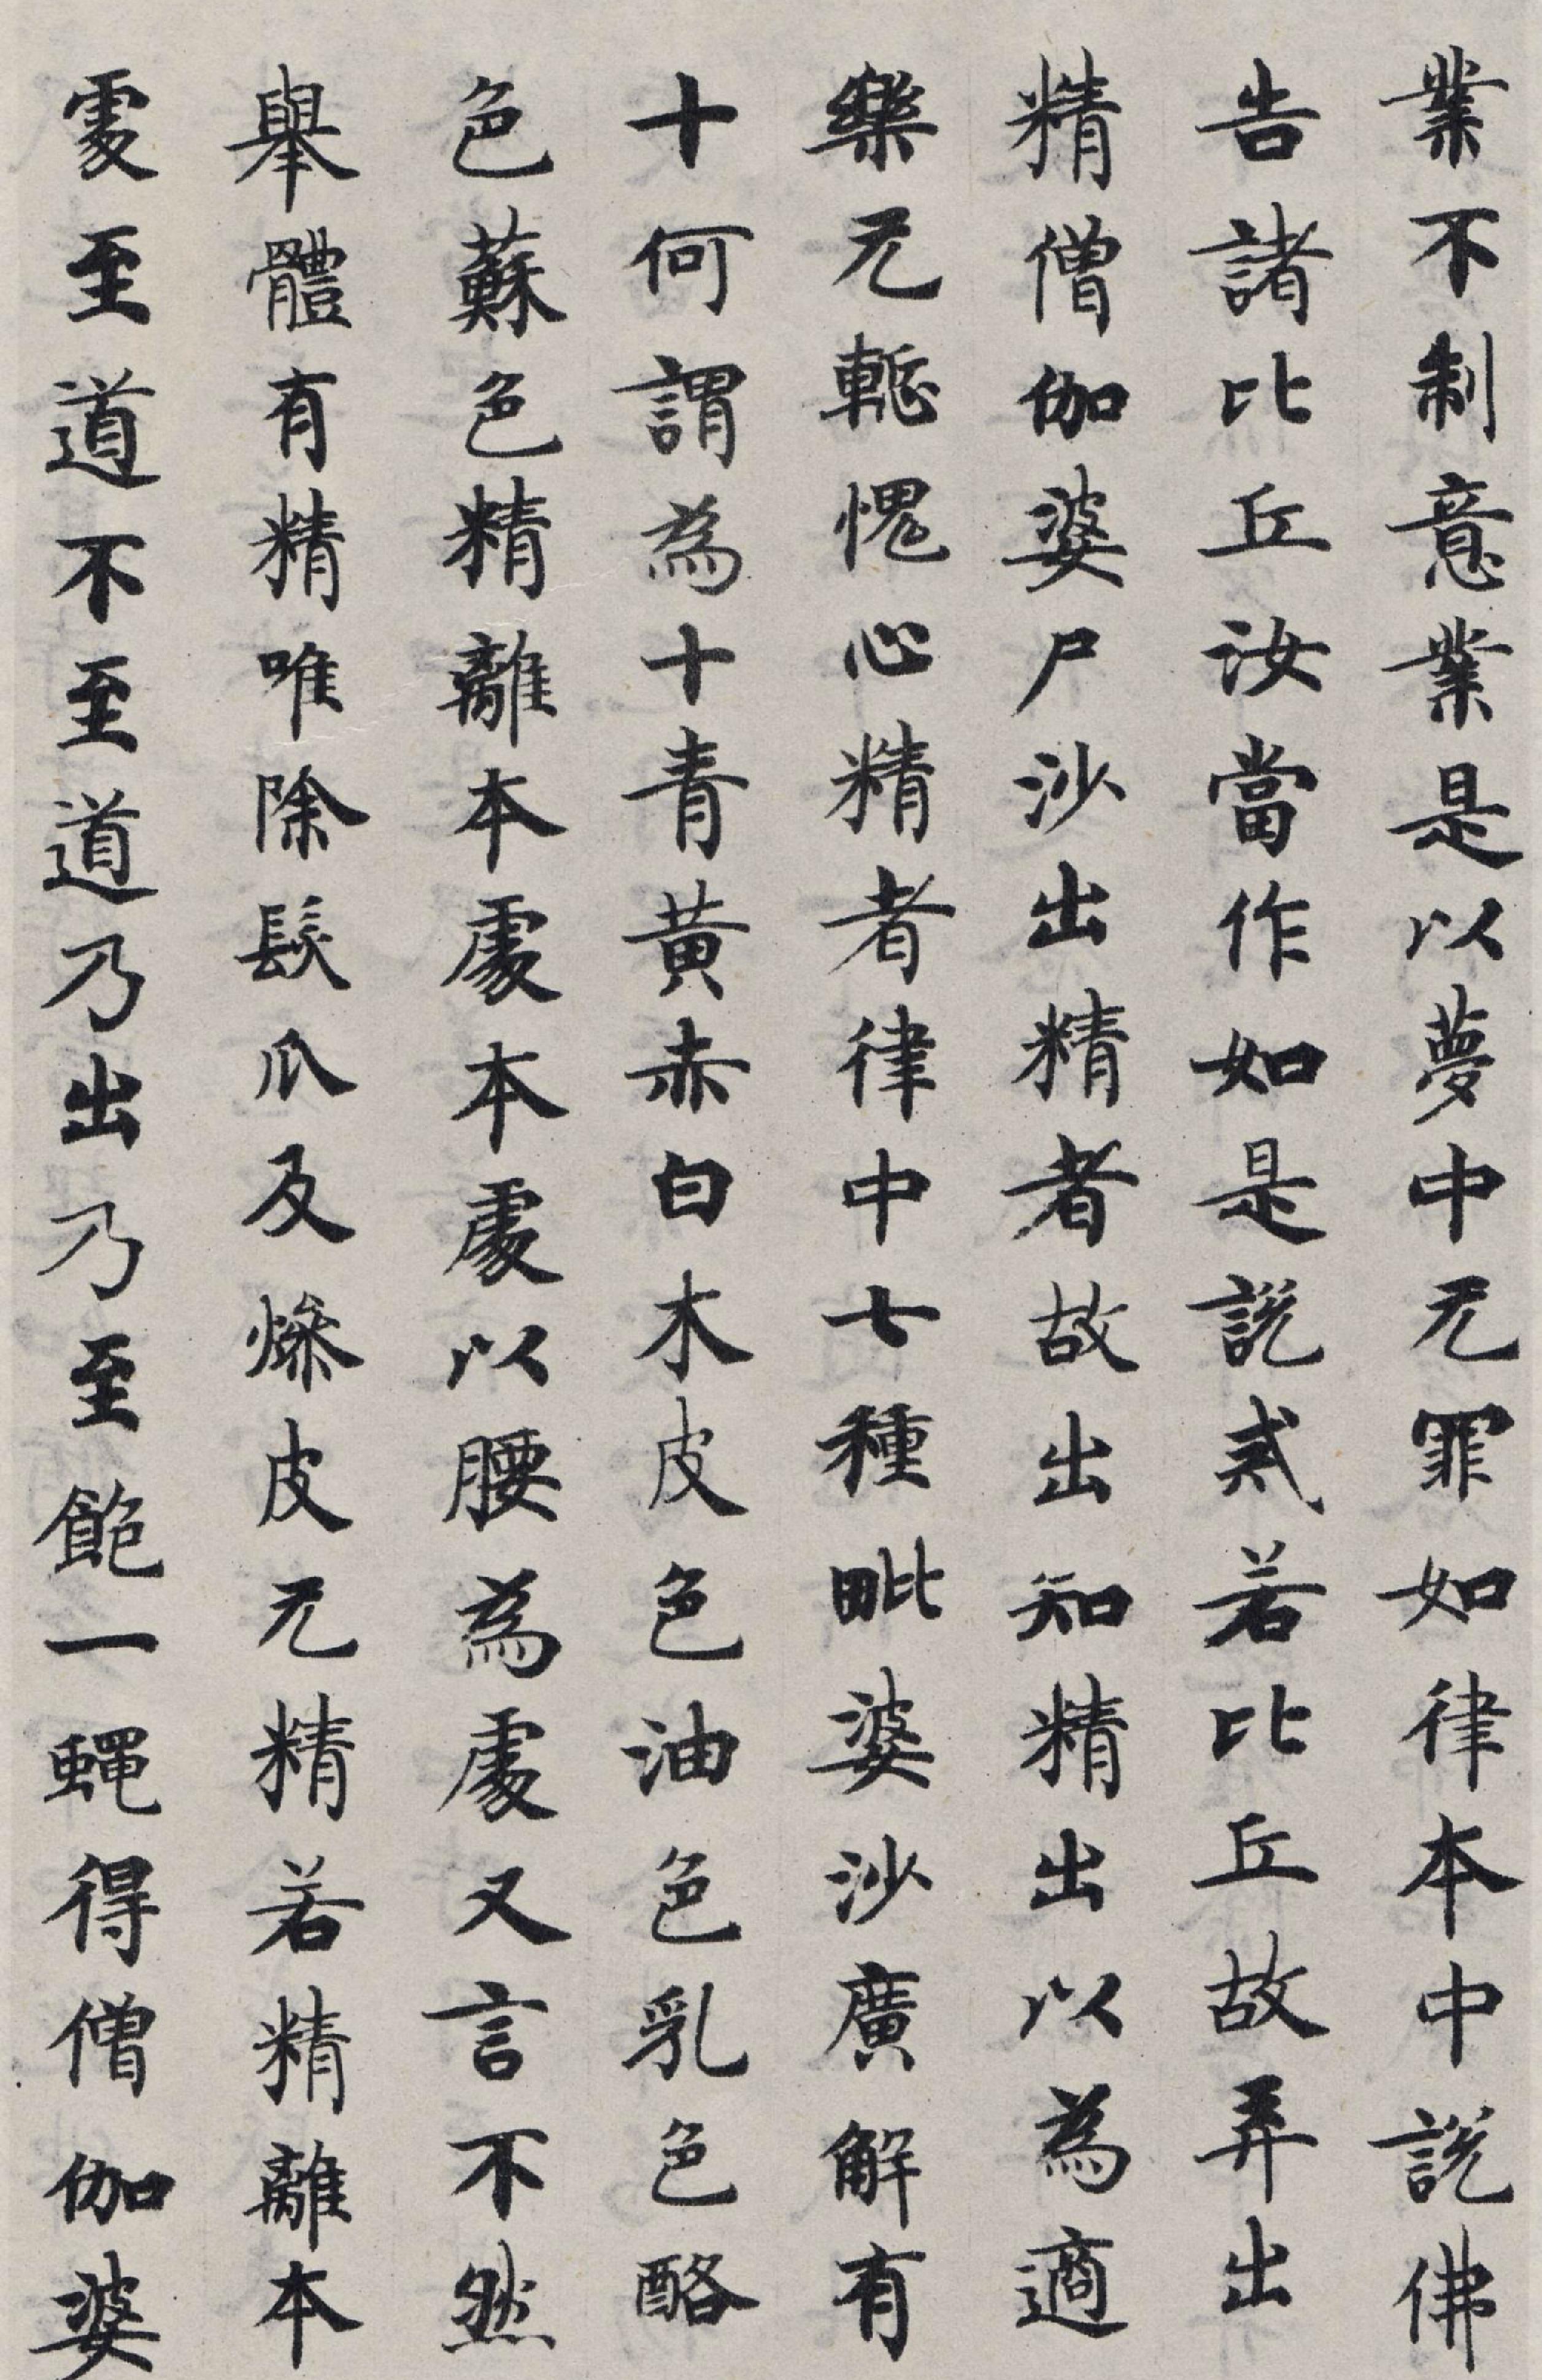 業不制意業是以夢中无罪如律本中說佛
告諸比丘汝當作如是說戒若比丘故弄出
精僧伽婆尸沙出精者故出知精出以為適
樂无慙愧心精者律中七種毗婆沙廣解有
十何謂為十青黃赤白木皮色油色乳色酪
色蘇色精離本處本處以腰為處又言不然
舉體有精唯除髮爪及燥皮无精若精離本
處至道不至道乃出乃至飽一蠅得僧伽婆